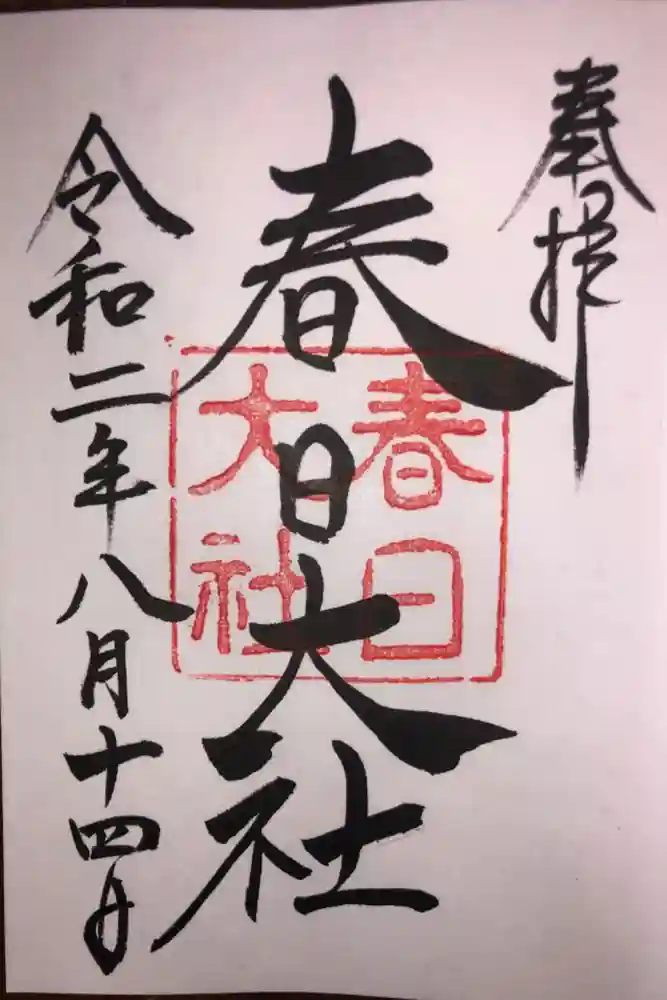 奉拝
春日大社
春日
大社
令和二年八月十四日